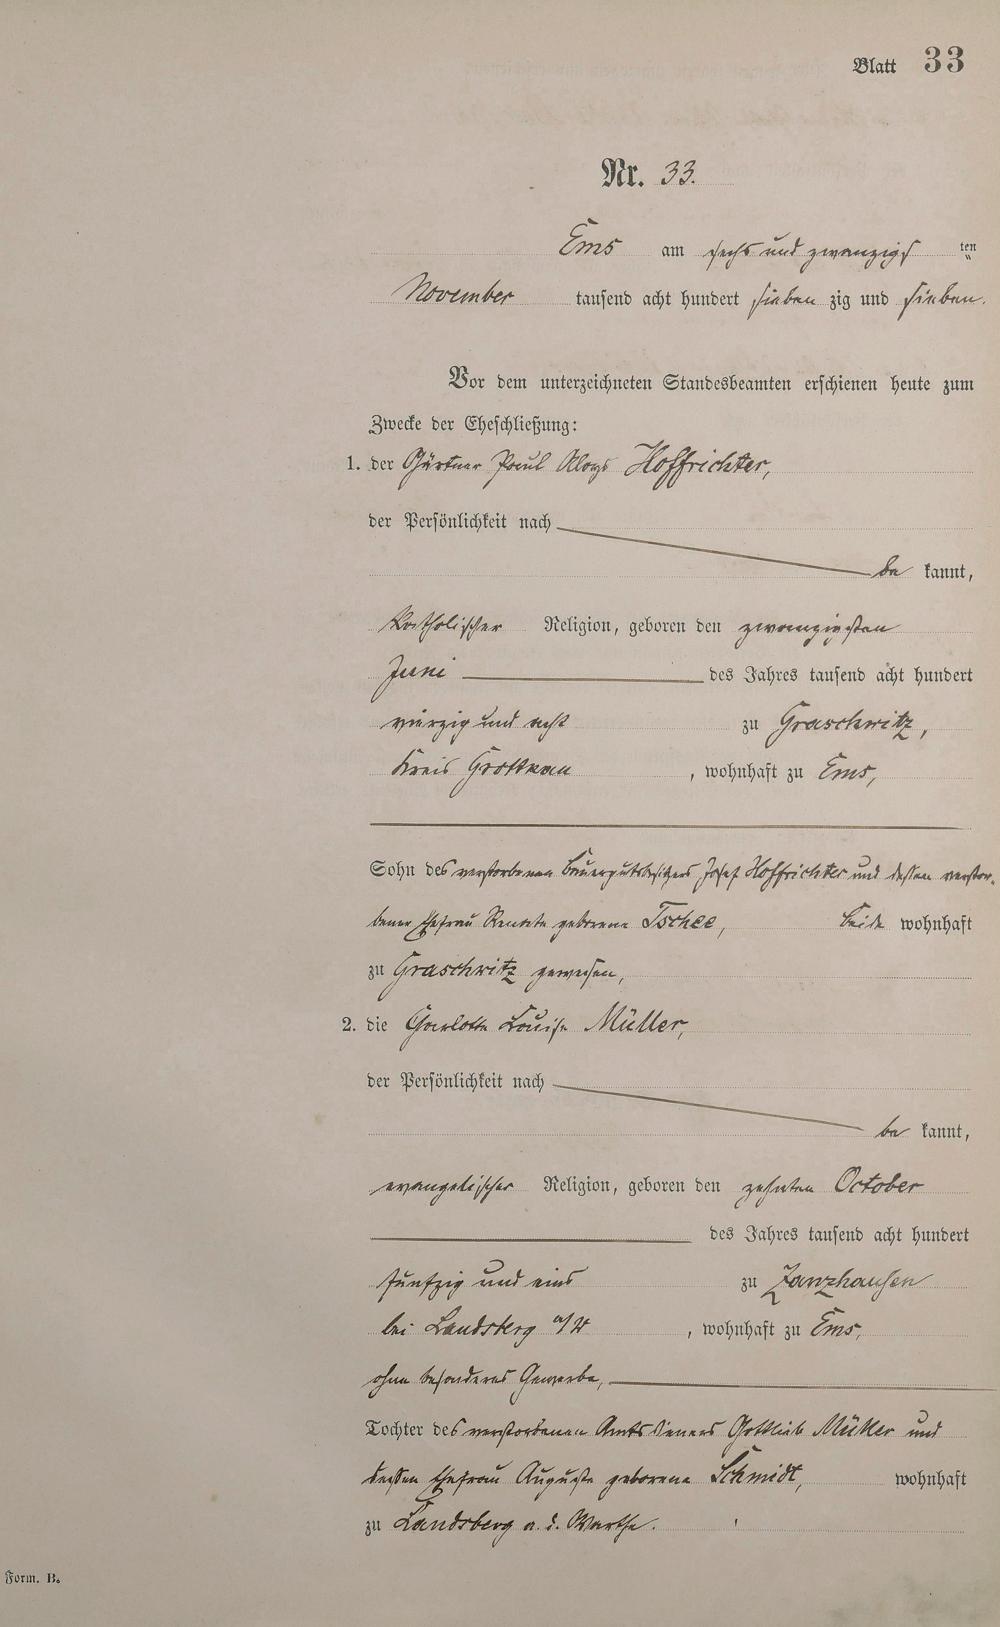 Blatt 33
Nr. 33.
Ems am sechs und zwanzigs ten
November tausend acht hundert sieben zig und sieben.
Vor dem unterzeichneten Standesbeamten erschienen heute zum
Zwecke der Eheschließung:
1. der Gärtner Paul Aloys Hoffrichter,
der Persönlichkeit nach
be kannt,
katholischer Religion, geboren den zwanzigsten
Juni des Jahres tausend acht hundert
vierzig und acht zu Graschwitz,
Kreis Grottkau , wohnhaft zu Ems,
Sohn des verstorbenen Bauergutsbesitzers Josef Hoffrichter und dessen verstor-
bener Ehefrau Renate geborene Tschee, beide wohnhaft
zu Graschwitz gewesen,
2. die Charlotte Louise Müller,
der Persönlichkeit nach
be kannt,
evangelischer Religion, geboren den zehnten October
des Jahres tausend acht hundert
fünfzig und eins zu Zanzhausen
bei Landsberg a/W , wohnhaft zu Ems,
ohne besonderes Gewerbe,
Tochter des verstorbenen Amtsdieners Gottlieb Müller und
dessen Ehefrau Auguste geborene Schmidt, wohnhaft
zu Landsberg a. d. Warthe.
Form. B.